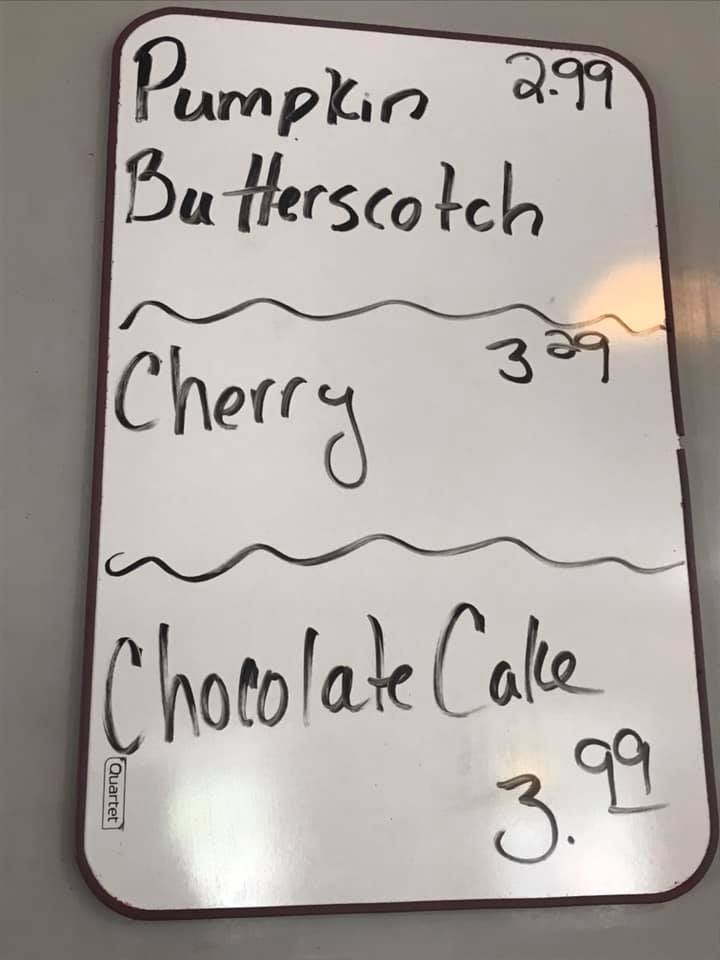 Pumpkin 2.99
Butterscotch
Cherry 3 29
Chocolate Cake
3.99
Quartet